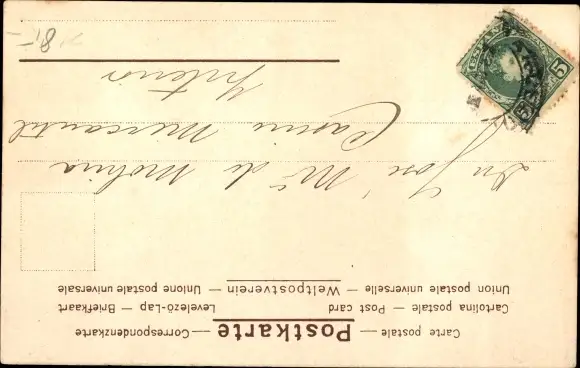 Carte postale — Postkarte — Correspondenzkarte
Cartolina postale — Post card Levelező-Lap — Briefkaart
Union postale universelle — Weltpostverein — Unione postale universale
Dn José Mª de Molina
Casino Mercantil
Interior
8,-
5